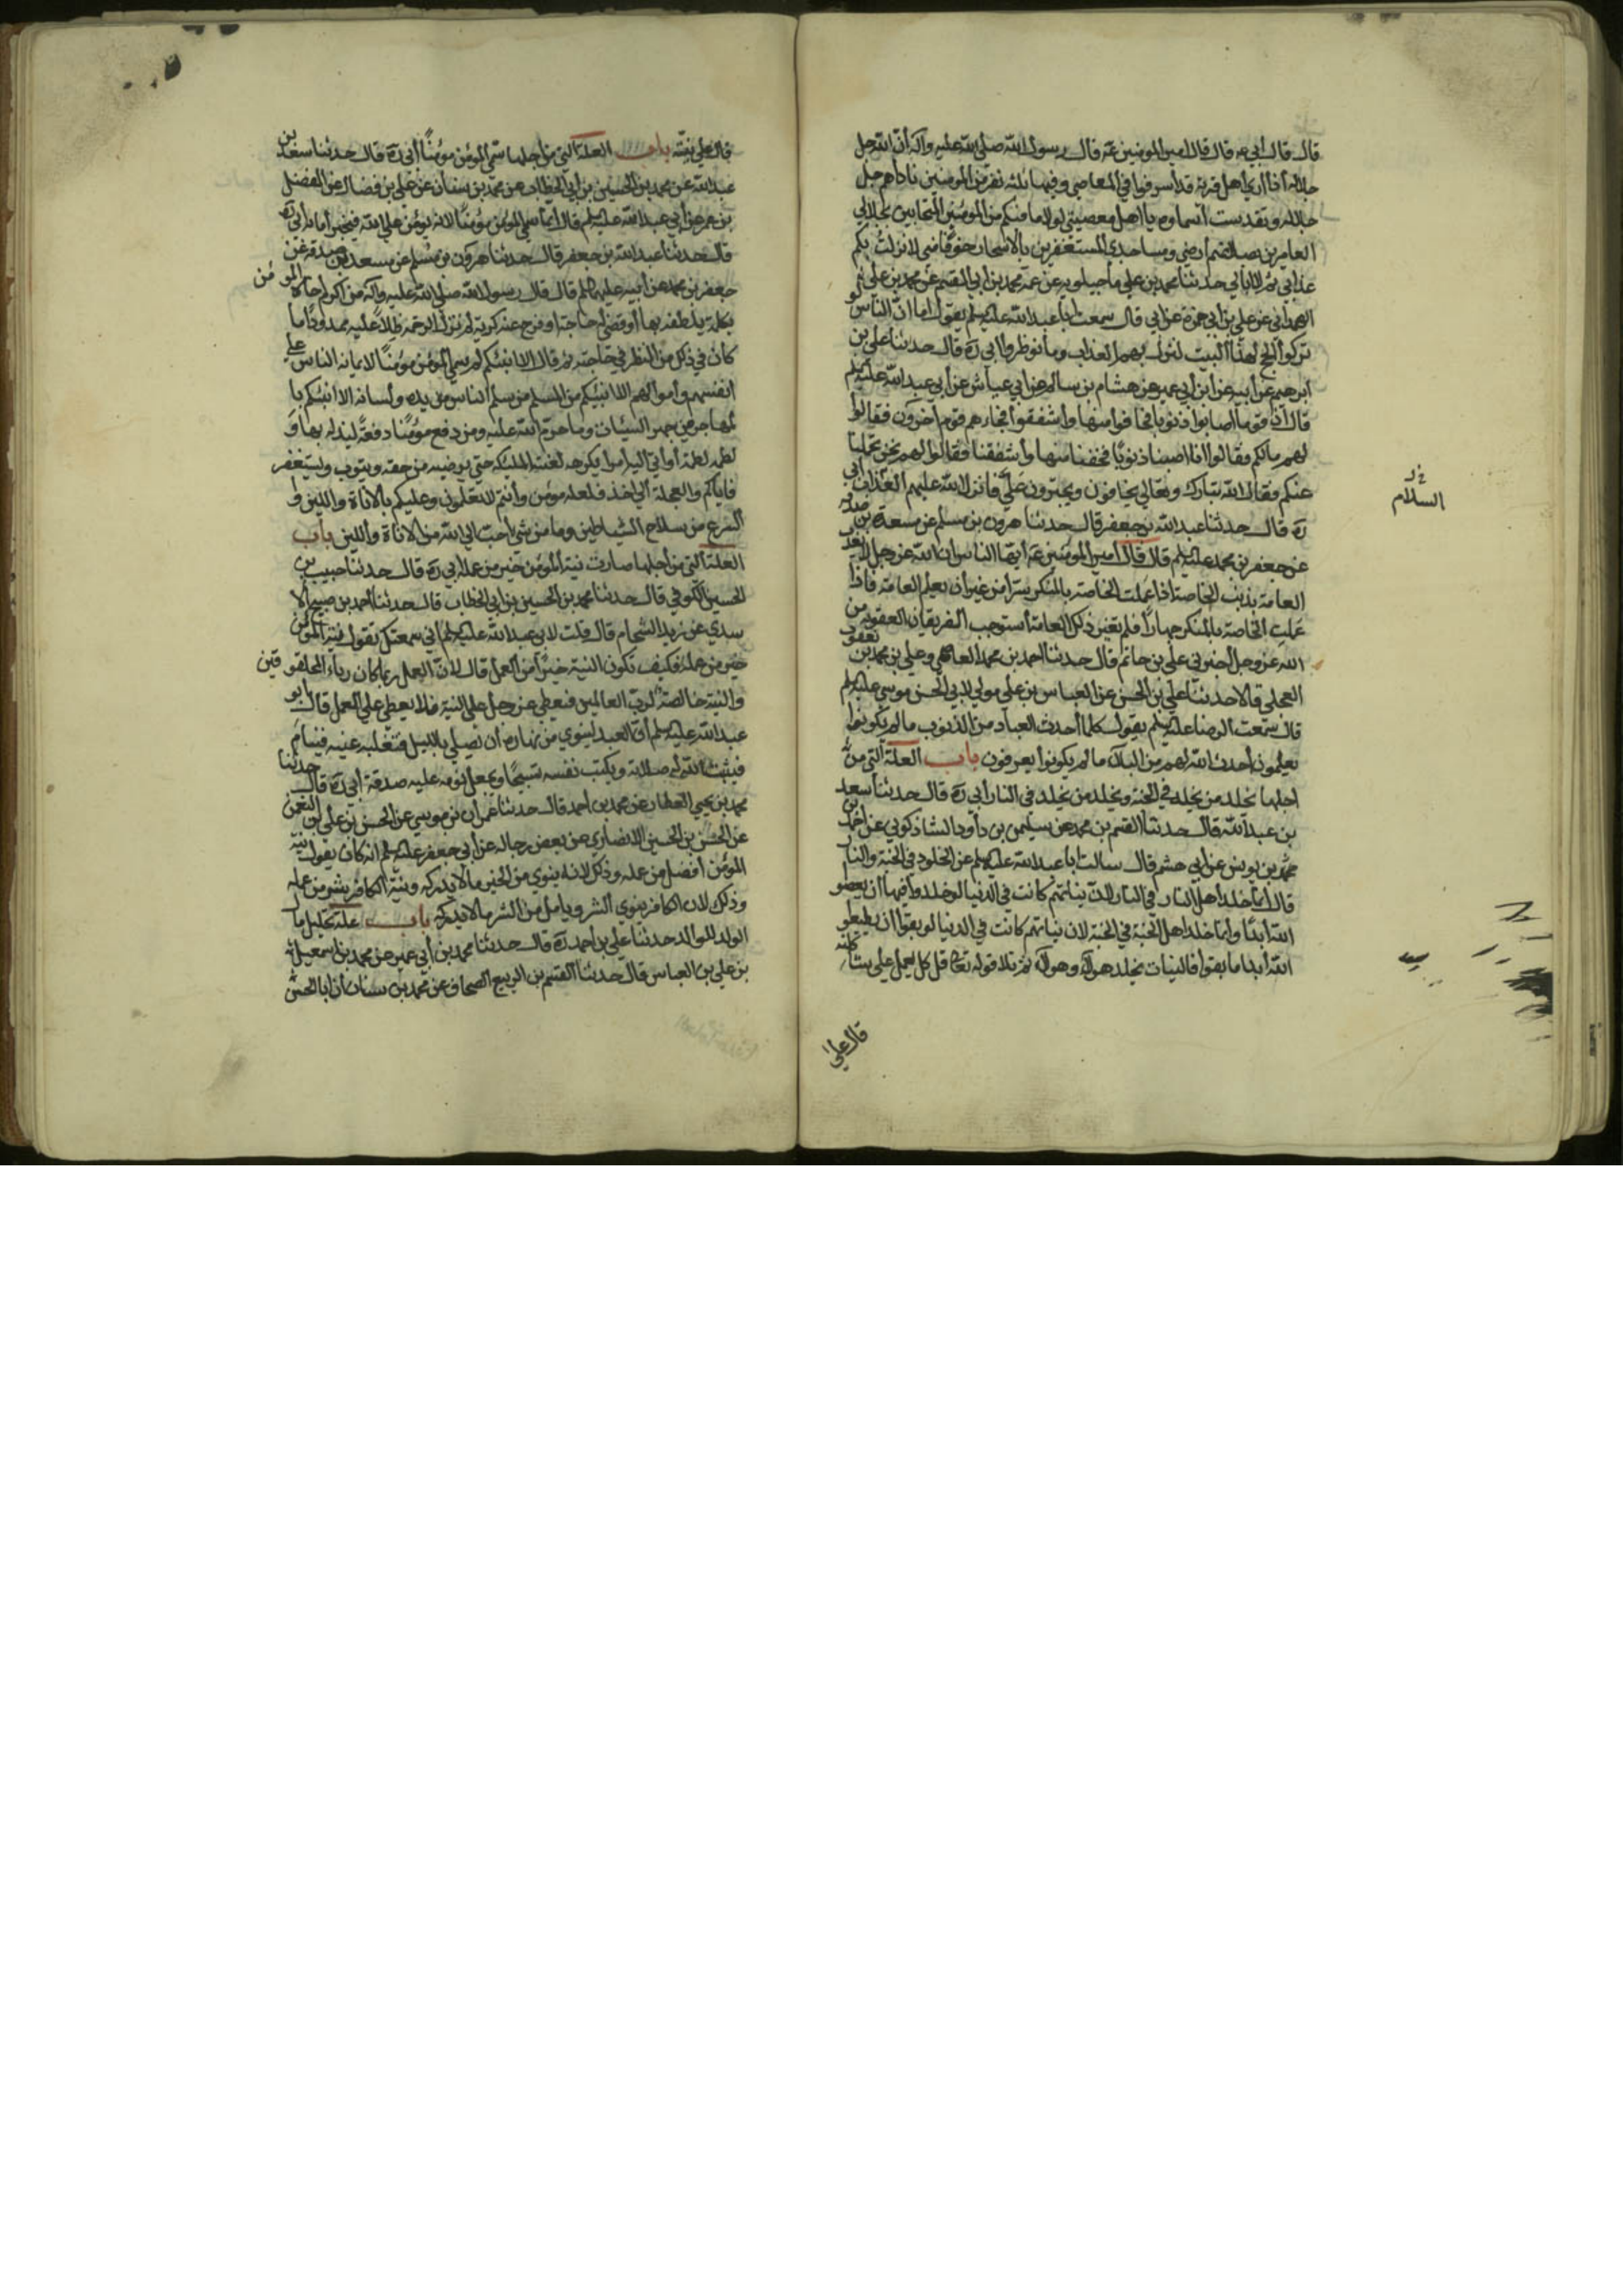 قال قال أبي عه قال قال امير المومنين عه قال رسول الله صلى الله عليه واله أن الله جل
جلاله أذا أري أهل قرية قد أسرفوا في المعاصي وفيها ثلثه نفر من المومنين ناداهم جل
جلاله وتقدست اسماوه يا اهل معصيتي لولا ما فيكم من المومنين المتحابين بجلالي
العامرين بصلاتهم أرضي ومساجدي المستغفرين بالاسحار خوفا مني لانزلت بكم
عذابي ثم لا ابالي حدثنا محمد بن علي ماجيلويه عن عمه محمد بن ابي القسم عن محمد بن علي
الهمداني عن علي بن أبي حمزة عن ابي قال سمعت ابا عبد الله عليه السلم يقول اما ان الناس لو
تركوا الحج لهذا البيت لنزل بهم العذاب وما نوظروا ابي ره قال حدثنا علي بن
ابرهيم عن أبيه عن أبن أبي عمير عن هشام بن سالم عن ابي عباش عن أبي عبد الله عليه السلم
قال أن قوما أصابوا ذنوبا فخافوا منها وأشفقوا فجاءهم قوم اخرون فقالوا
لهم مالكم فقالوا انا اصبنا ذنوبا فخفنا منها وأشفقنا فقالوا لهم نحن نحملها
عنكم فقال الله تبارك وتعالي يخافون ويجترون علي فانزل الله عليهم العذاب أبي
ره قال حدثنا عبد الله بن جعفر قال حدثنا هرون بن مسلم عن مسعدة بن صدقه
عن جعفر بن محمد عليه السلم قال قال امير المومنين عه أيها الناس ان الله عز وجل لا يعذب
العامة بذنب الخاصة اذا عملت الخاصة بالمنكر سرا من غير أن يعلم العامة فاذا
عملت الخاصة بالمنكر جهارا فلم يغير ذلك العامة أستوجب الفريقان العقوبه من
الله عز وجل أخبرني علي بن حاتم قال حدثنا احمد بن محمد العاصمي وعلي بن محمد بن يعقوب
العجلي قالا حدثنا علي بن الحسن عن العباس بن علي مولي لابي الحسن موسي عليه السلم
قال سمعت الرضا عليه السلم يقول كلما أحدث العباد من الذنوب ما لم يكونوا
يعلمون أحدث الله لهم من البلاء ما لم يكونوا يعرفون باب العلة التي من
اجلها يخلد من يخلد في الجنة ويخلد من يخلد في النار أبي ره قال حدثنا سعد
بن عبد الله قال حدثنا القسم بن محمد عن سليمن بن داود الشاذكوني عن احمد بن
يونس عن ابي هشم قال سالت ابا عبد الله عليه السلم عن الخلود في الجنة والنار
قال أنما خلد اهل النار في النار لان نياتهم كانت في الدنيا لو خلدوا فيها ان يعصو
الله أبدا وانما خلد اهل الجنة في الجنة لان نياتهم كانت في الدنيا لو بقوا ان يطيعو
الله أبدا ما بقوا فالنيات يخلد هولاء وهولاء ثم تلا قوله تعالى قل كل يعمل علي شاكلته
قال علي
السلام
قال علي نيته باب العلة التي من اجلها سمي المؤمن مؤمنا أبي ره قال حدثنا سعد بن
عبد الله عن محمد بن الحسين بن ابي الخطاب عن محمد بن سنان عن علي بن فضال عن المفضل
بن عمر عن أبي عبد الله عليه السلم قال انما سمي المؤمن مؤمنا لانه يؤمن علي الله فيجيز أمانه أبي ره
قال حدثنا عبد الله بن جعفر قال حدثنا هرون بن مسلم عن مسعدة بن صدقه عن
جعفر بن محمد عن أبيه عليهما السلم قال قال رسول الله صلى الله عليه واله من أكرم أخاه المؤمن
بكلمة يلطفه بها أو قضى له حاجة او فرج عنه كربة لم تزل الرحمة ظلا عليه ممدودا ما
كان في ذلك من النظر في حاجته ثم قال الا انبئكم لم سمي المؤمن مؤمنا لايمانه الناس علي
انفسهم وأموالهم الا انبئكم من المسلم من سلم الناس من يده ولسانه الا انبئكم با
لمهاجر من هجر السيئات وما حرم الله عليه ومن دفع مؤمنا دفعة ليذله بها أو
لطمه لطمة أو أتي اليه أمرا يكرهه لعنته الملئكه حتي يرضيه من حقه ويتوب ويستغفر
فاياكم والعجلة الي أحد فلعله مؤمن وأنتم لا تعلمون وعليكم بالاناة واللين وا
لتسرع من سلاح الشياطين وما من شي احب الي الله من الاناة واللين باب
العلة التي من أجلها صارت نية المؤمن خير من عمله ابي ره قال حدثنا حبيب بن
الحسين الكوفي قال حدثنا محمد بن الحسين بن ابي الخطاب قال حدثنا أحمد بن صبيح الا
سدي عن زيد الشحام قال قلت لابي عبد الله عليه السلم اني سمعتك تقول نية المؤمن
خير من عمله فكيف تكون النية خيرا من العمل قال لان العمل ربما كان رياء المخلوقين
والنية خالصة لرب العالمين فيعطي عز وجل علي النية ما لا يعطي علي العمل قال أبو
عبد الله عليه السلم أن العبد لينوي من نهاره أن يصلي بالليل فتغلبه عينه فينام
فيثبت الله له صلاته ويكتب نفسه تسبيحا ويجعل نومه عليه صدقة أبي ره قال حدثنا
محمد بن يحيي العطار عن محمد بن أحمد قال حدثنا عمران بن موسي عن الحسن بن علي النعمن
عن الحسن بن الحسين الانصاري عن بعض رجاله عن أبي جعفر عليه السلم انه كان يقول نية
المؤمن أفضل من عمله وذلك لانه ينوي من الخير ما لا يدركه ونية الكافر شر من عمله
وذلك لان الكافر ينوي الشر ويامل من الشر ما لا يدركه باب علة تحليل مال
الولد للوالد حدثنا علي بن احمد ره قال حدثنا محمد بن أبي عبد الله عن محمد بن اسمعيل
بن علي بن العباس قال حدثنا القسم بن الربيع الصحاف عن محمد بن سنان أن ابا الحسن